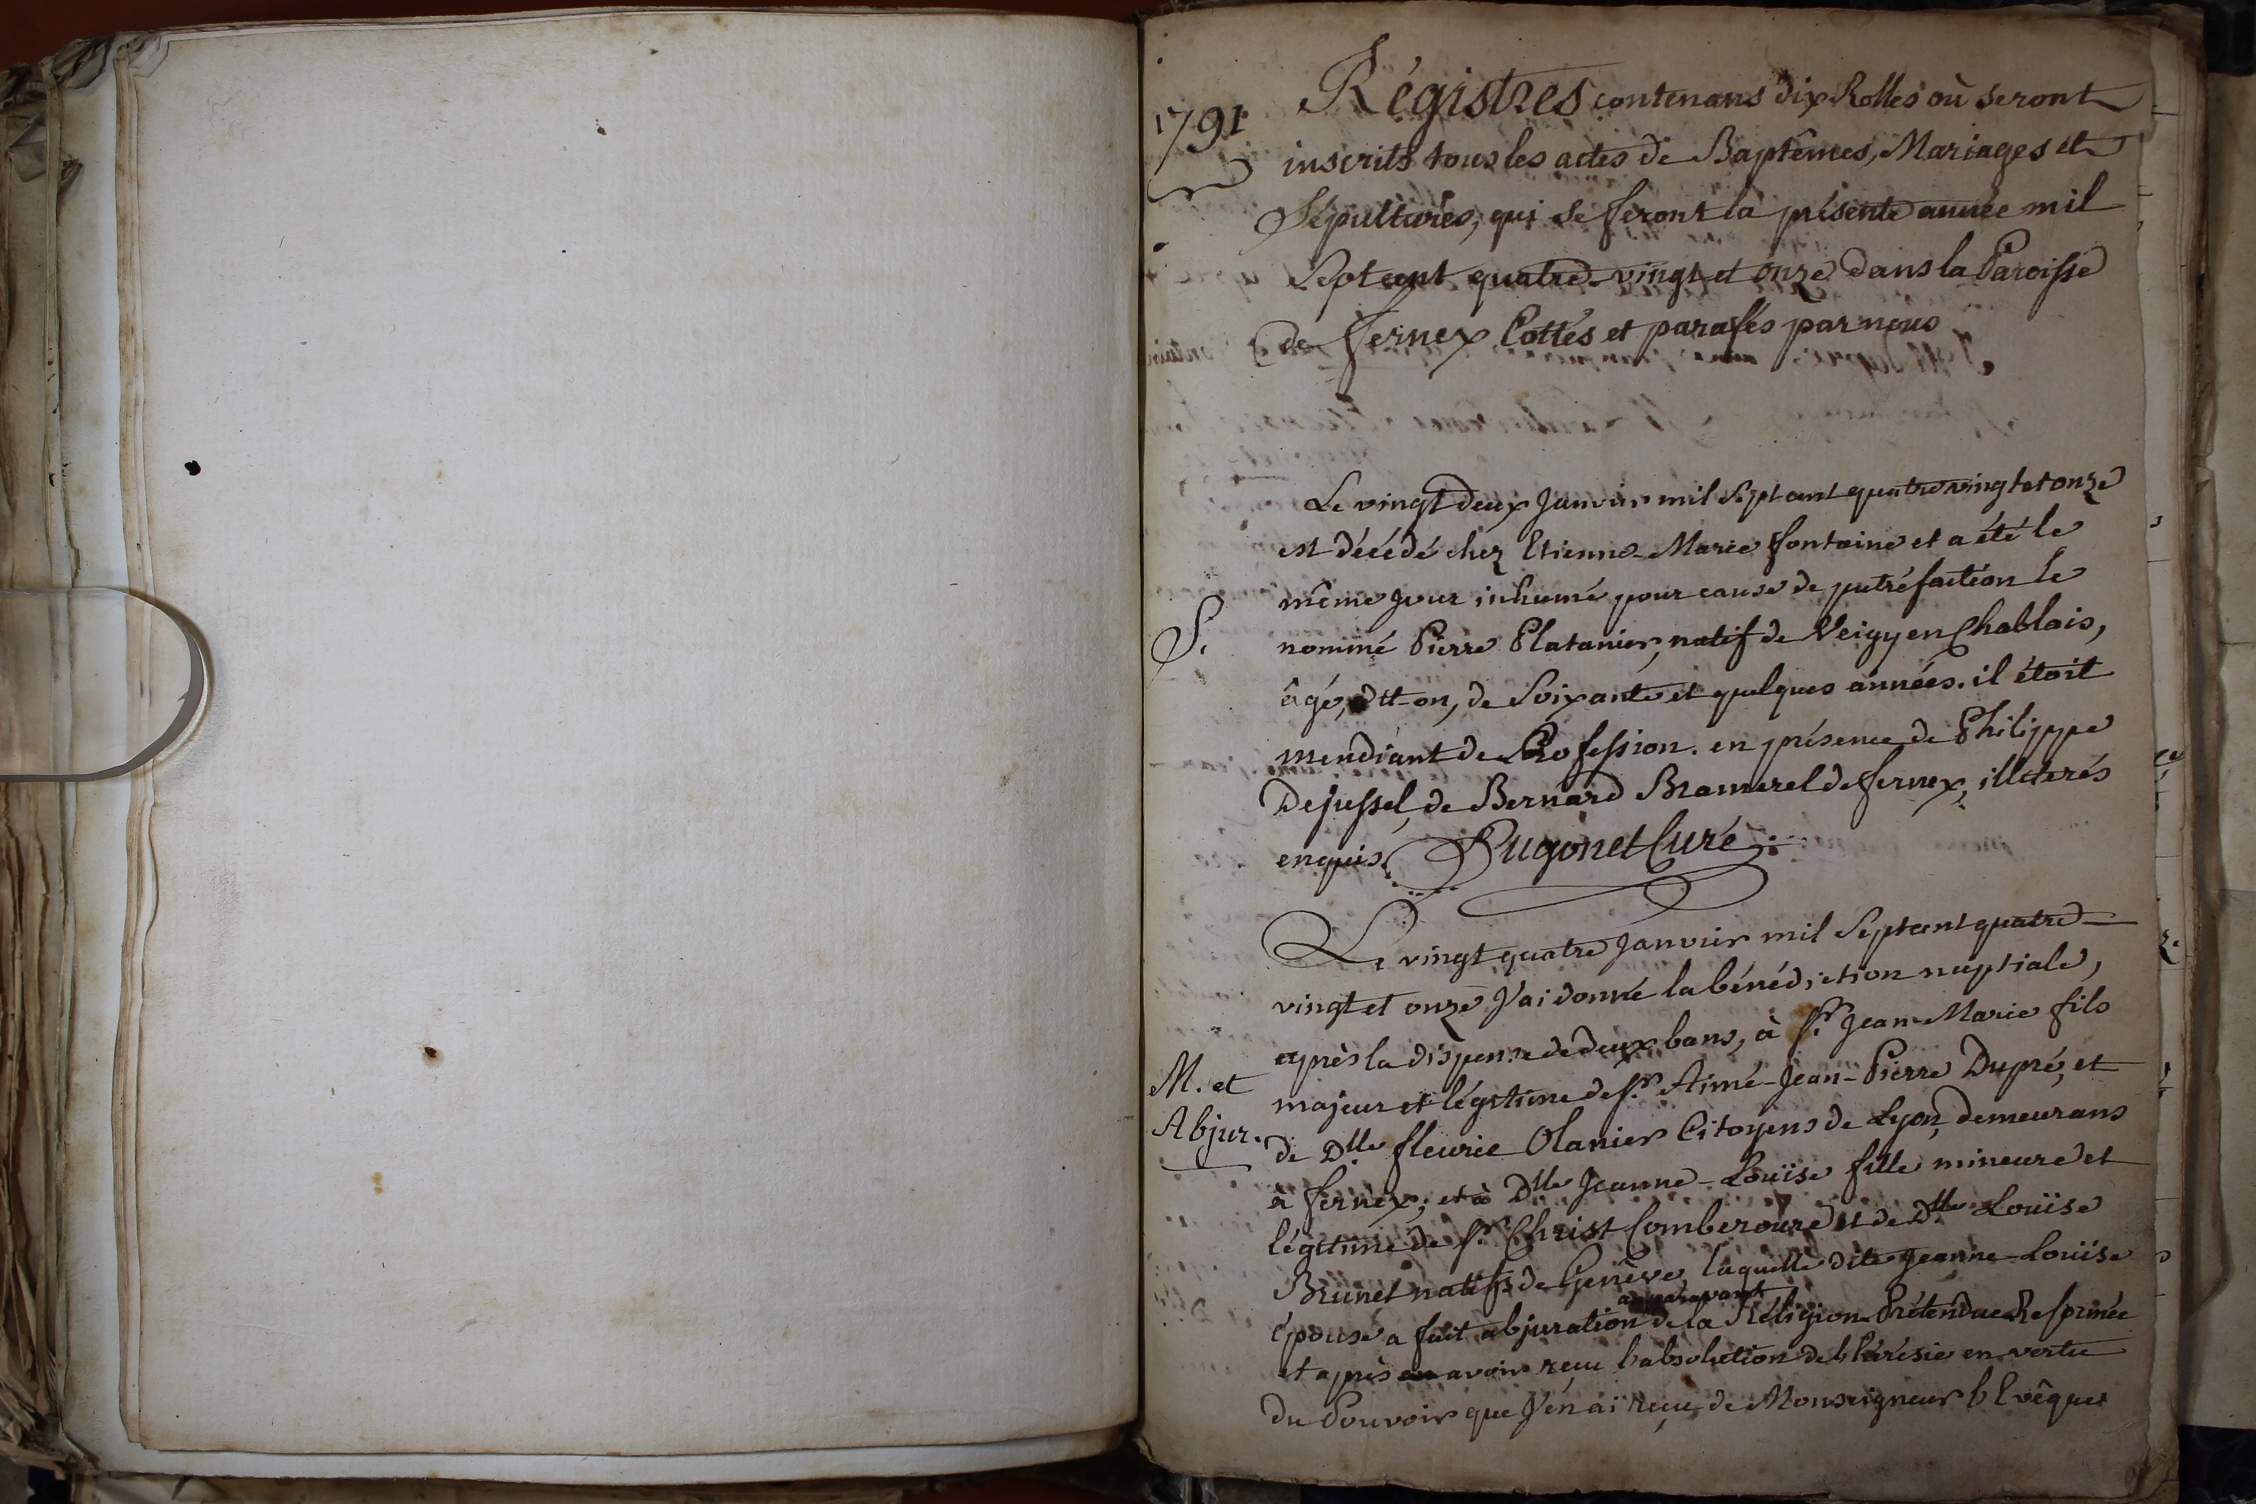 1791
Régistres contenans dix Rolles où seront
inscrits tous les actes de Baptêmes, Mariages et
Sépultures, qui se feront la présente année mil
Septcent quatre-vingt et onze dans la Paroisse
de fernex Cottés et parafés par nous
Le vingt deux Janvier mil Septcent quatre vingt et onze
est décédé chez Etienne-Marie fontaine et a été le
même jour inhumé pour cause de putréfaction le
S.
nommé Pierre Platanier, natif de Veigy en Chablais,
âgé, dit-on, de Soixante et quelques années. il étoit
mendiant de Profession. en présence de Philippe
Dejussel, de Bernard Bramerel de fernex, illiterés
enquis. Hugonet Curé
Le vingt quatre Janvier mil Septcent quatre-
vingt et onze J'ai donné la bénédiction nuptiale,
après la dispense de deux bans, à Sr. Jean-Marie fils
M. et
majeur et légitime de Sr. Aimé-Jean-Pierre Dupré, et
Abjur.
de Dlle fleurie Olanier Citoyens de Lyon, demeurans
à fernex; et à Dlle Jeanne-Louïse fille mineure et
légitime de Sr. Christ Comberoure et de Dlle Louïse
Brunet natifs de Genève, laquelle dite Jeanne-Louïse
auparavant
épouse a fait abjuration de la Réligion Prétendue Reformée
et après avoir reçu l'absolution de l'hérésie en vertu
du Pouvoir que J'en ai reçu de Monseigneur l'Evêque